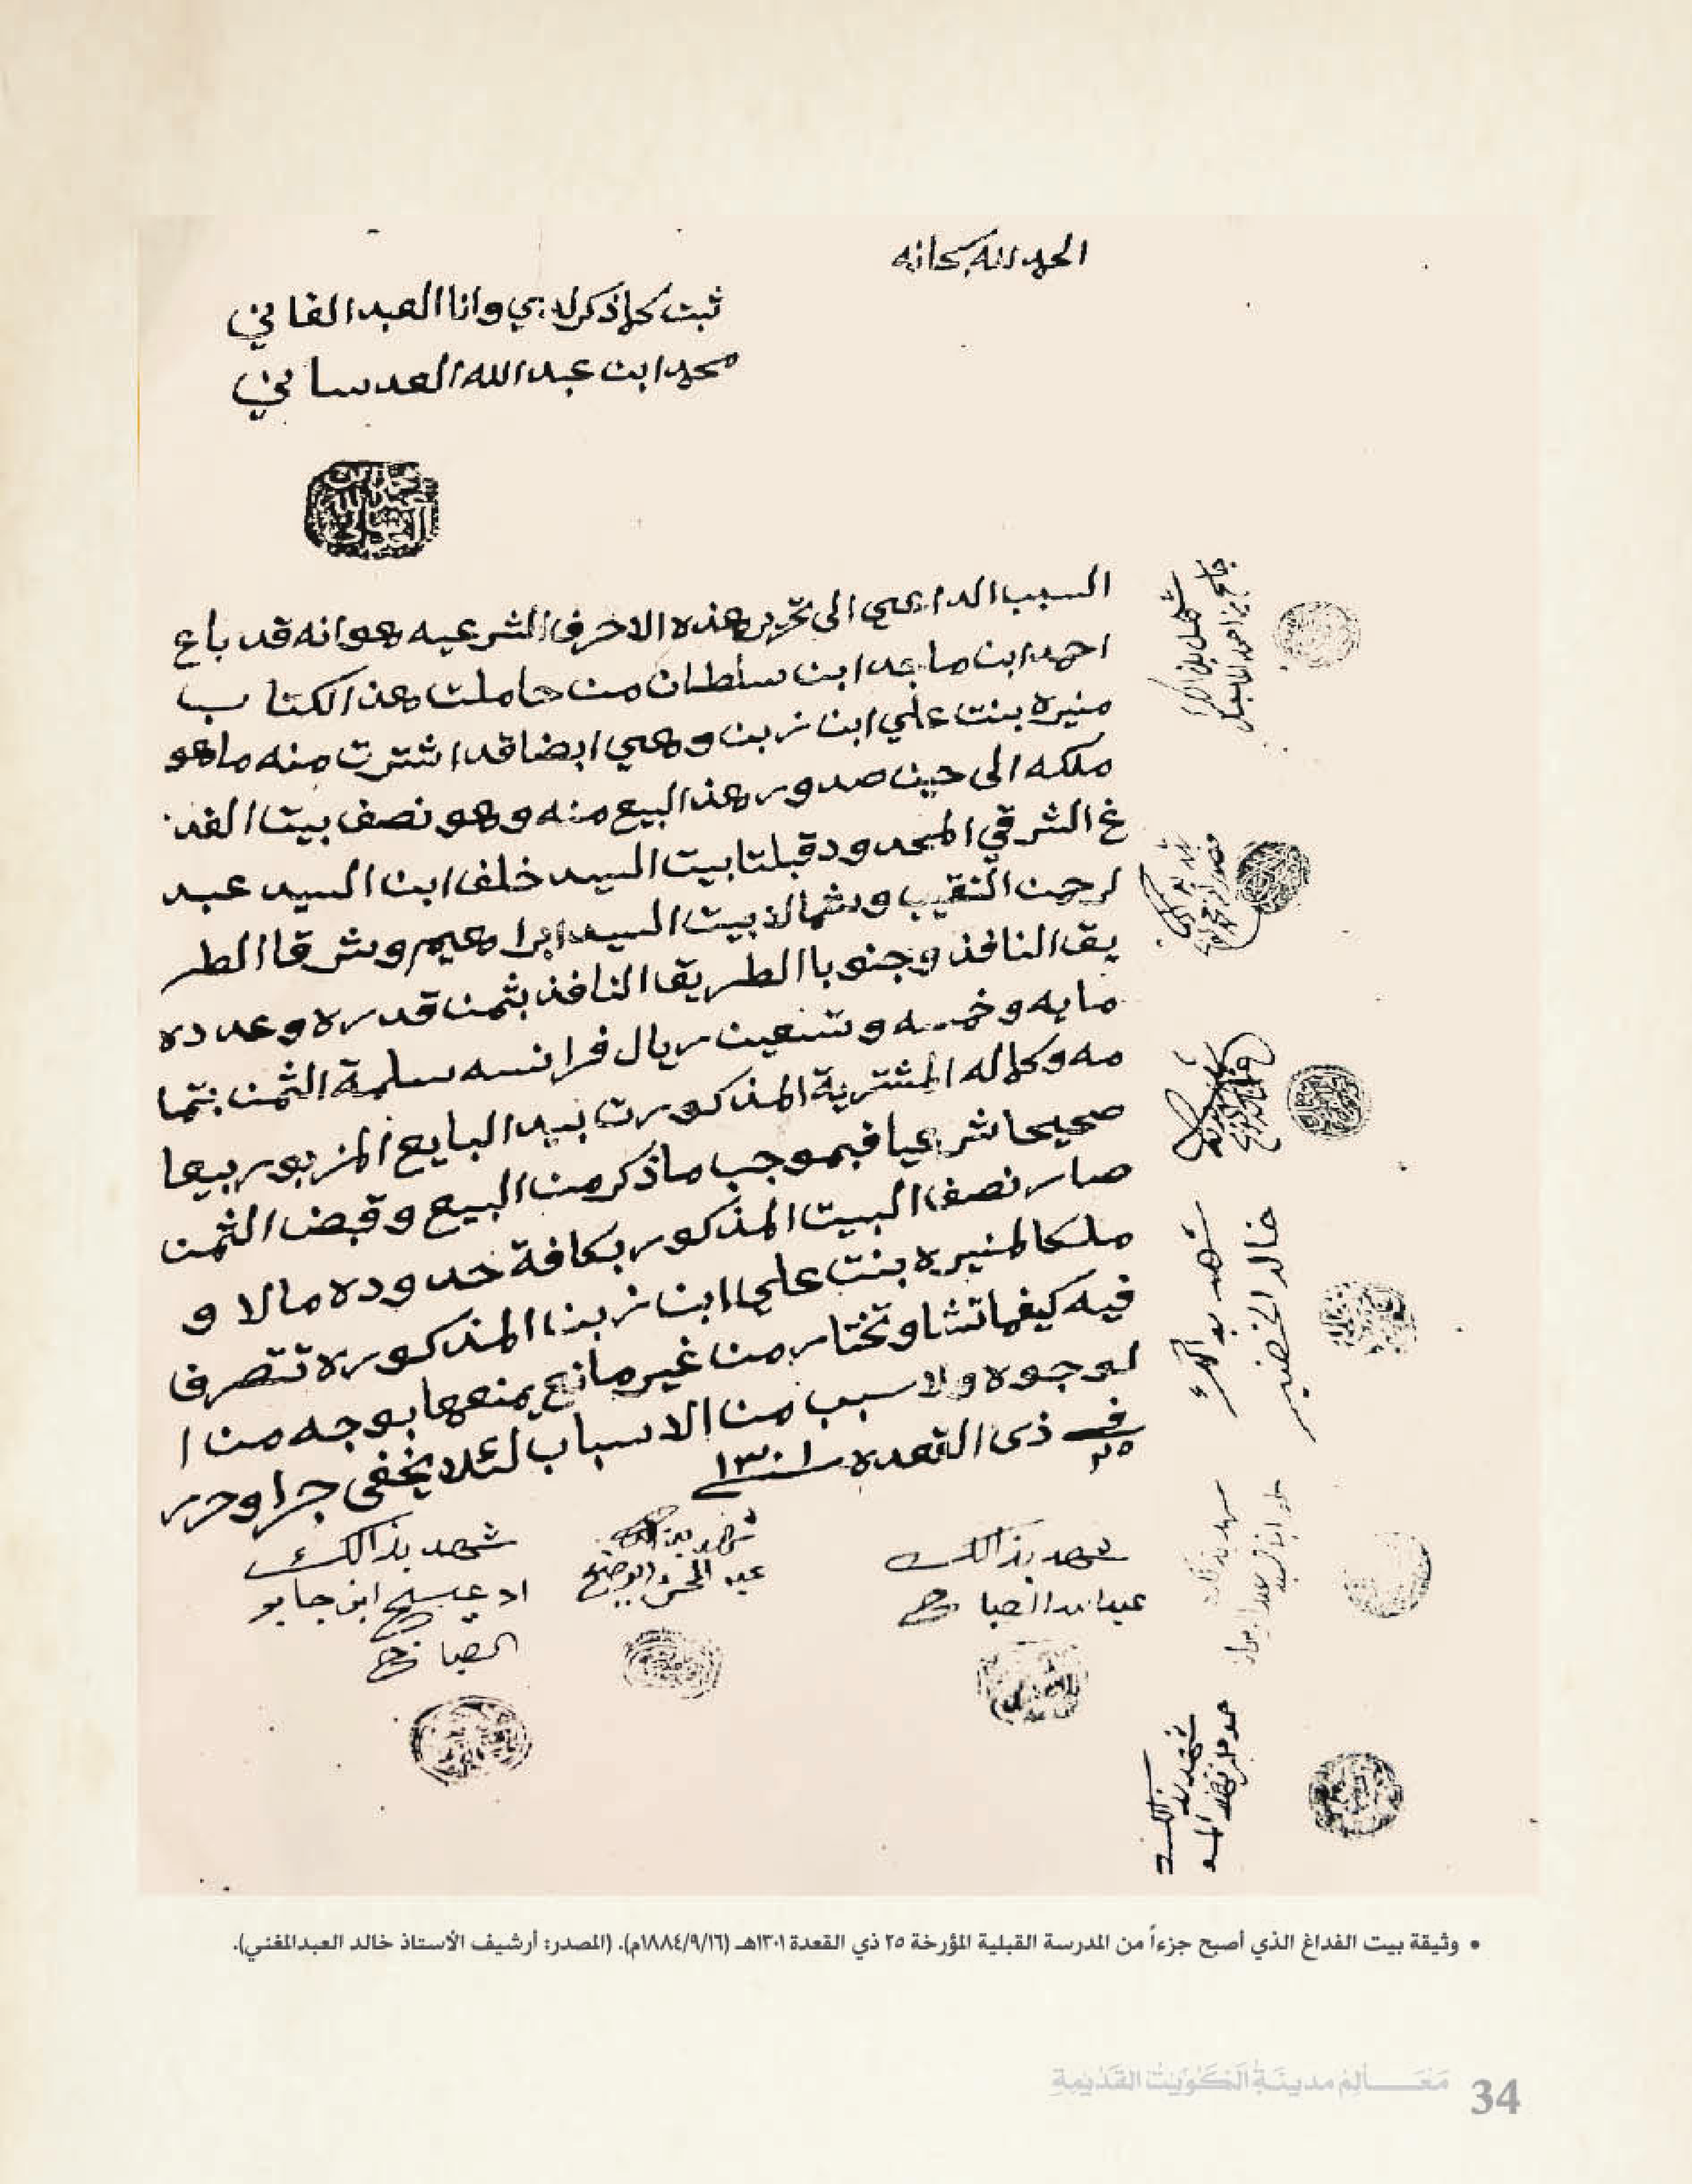 الحمد لله سبحانه
ثبت كلما ذكر لدي وانا العبد الفاني
محمد ابن عبد الله العدساني
السبب الداعي الى تحرير هذه الاحرف الشرعيه هو انه قد باع
احمد ابن ماجد ابن سلطان من حاملت هذ الكتاب
منيره بنت علي ابن زبن وهي ايضا قد اشترت منه ما هو
ملكه الى حين صدور هذ البيع منه وهو نصف بيت الفد
غ الشرقي المحدود قبلتا بيت السيد خلف ابن السيد عبد
لرحمن النقيب وشمالا بيت السيد ابراهيم وشرقا الطر
يق النافذ وجنوبا الطريق النافذ بثمن قدره وعدده
مايه وخمسه وتسعين ريال فرانسه سلمة الثمن بتما
مه وكماله المشترية المذكورت بيد البايع المزبور بيعا
صحيحا شرعيا فبموجب ما ذكر من البيع وقبض الثمن
صار نصف البيت المذكور بكافة حدوده مالا و
ملكا لمنيره بنت علي ابن زبن المذكوره تتصرف
فيه كيفما تشا وتختار من غير مانع يمنعها بوجه من ا
لوجوه ولا سبب من الاسباب لئلا يخفى جرا وحرر
في ٢٥ ذى القعده سنة ١٣٠١
شهد بذالك
عبدالله الصباح
شهد بذالك
شهد بذالك
ادعيج ابن جابر
الصباح
شهد بذالك
خالد الخضير
شهد بذالك
• وثيقة بيت الفداغ الذي أصبح جزءاً من المدرسة القبلية المؤرخة ٢٥ ذي القعدة ١٣٠١هـ (١٨٨٤/٩/١٦م). (المصدر: أرشيف الأستاذ خالد العبدالمغني).
مَعَالِم مدينَةِ الكُوَيت القَديمَةِ
34